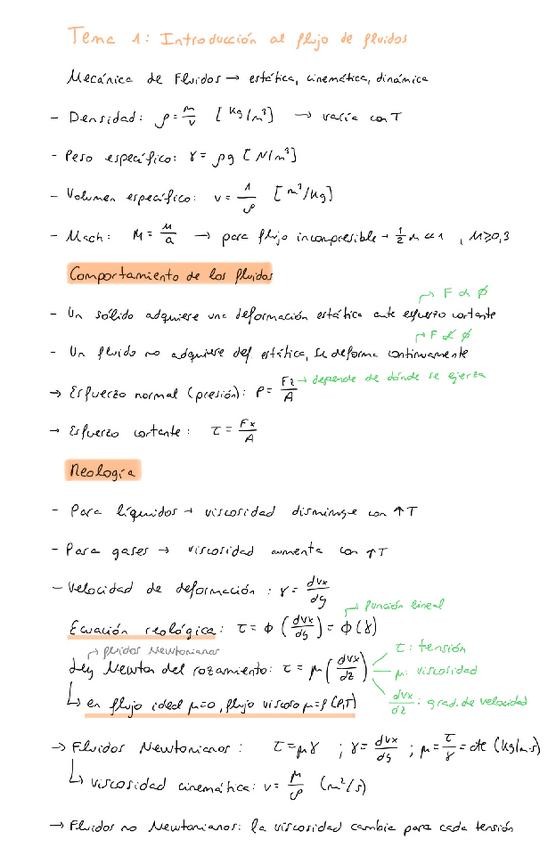 Tema 1: Introducción al flujo de fluidos
Mecánica de Fluidos → estática, cinemática, dinámica
- Densidad: ρ = m/v [kg/m³] → varía con T
- Peso específico: γ = ρg [N/m³]
- Volumen específico: v = 1/ρ [m³/kg]
- Mach: M = u/a → para flujo incompresible → 1/2 M << 1 , M≥0,3
Comportamiento de los fluidos
→ F α ϕ
- Un sólido adquiere una deformación estática ante esfuerzo cortante
→ F α̸ ϕ
- Un fluido no adquiere def estática, se deforma continuamente
→ Esfuerzo normal (presión): P = Fz/A → depende de dónde se ejerza
→ Esfuerzo cortante: τ = Fx/A
Reología
- Para líquidos → viscosidad disminuye con ↑T
- Para gases → viscosidad aumenta con ↑T
- Velocidad de deformación: γ = dvx/dy
→ Función lineal
Ecuación reológica: τ = ϕ (dvx/dy) = ϕ(γ)
→ fluidos Newtonianos
Ley Newton del rozamiento: τ = μ (dvx/dz)
τ: tensión
μ: viscosidad
dvx/dz: grad. de velocidad
↳ en flujo ideal μ=0, flujo viscoso μ=f(P,T)
→ Fluidos Newtonianos: τ = μγ ; γ = dvx/dy ; μ = τ/γ = cte (kg/m·s)
↳ viscosidad cinemática: ν = μ/ρ (m²/s)
→ Fluidos no Newtonianos: la viscosidad cambia para cada tensión